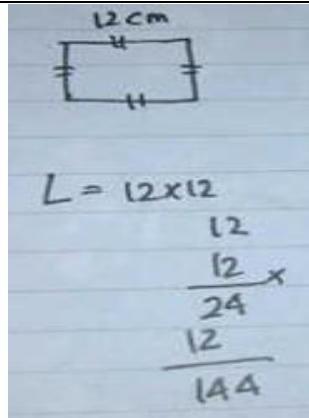 12 cm
L = 12x12
12
12 x
24
12
144